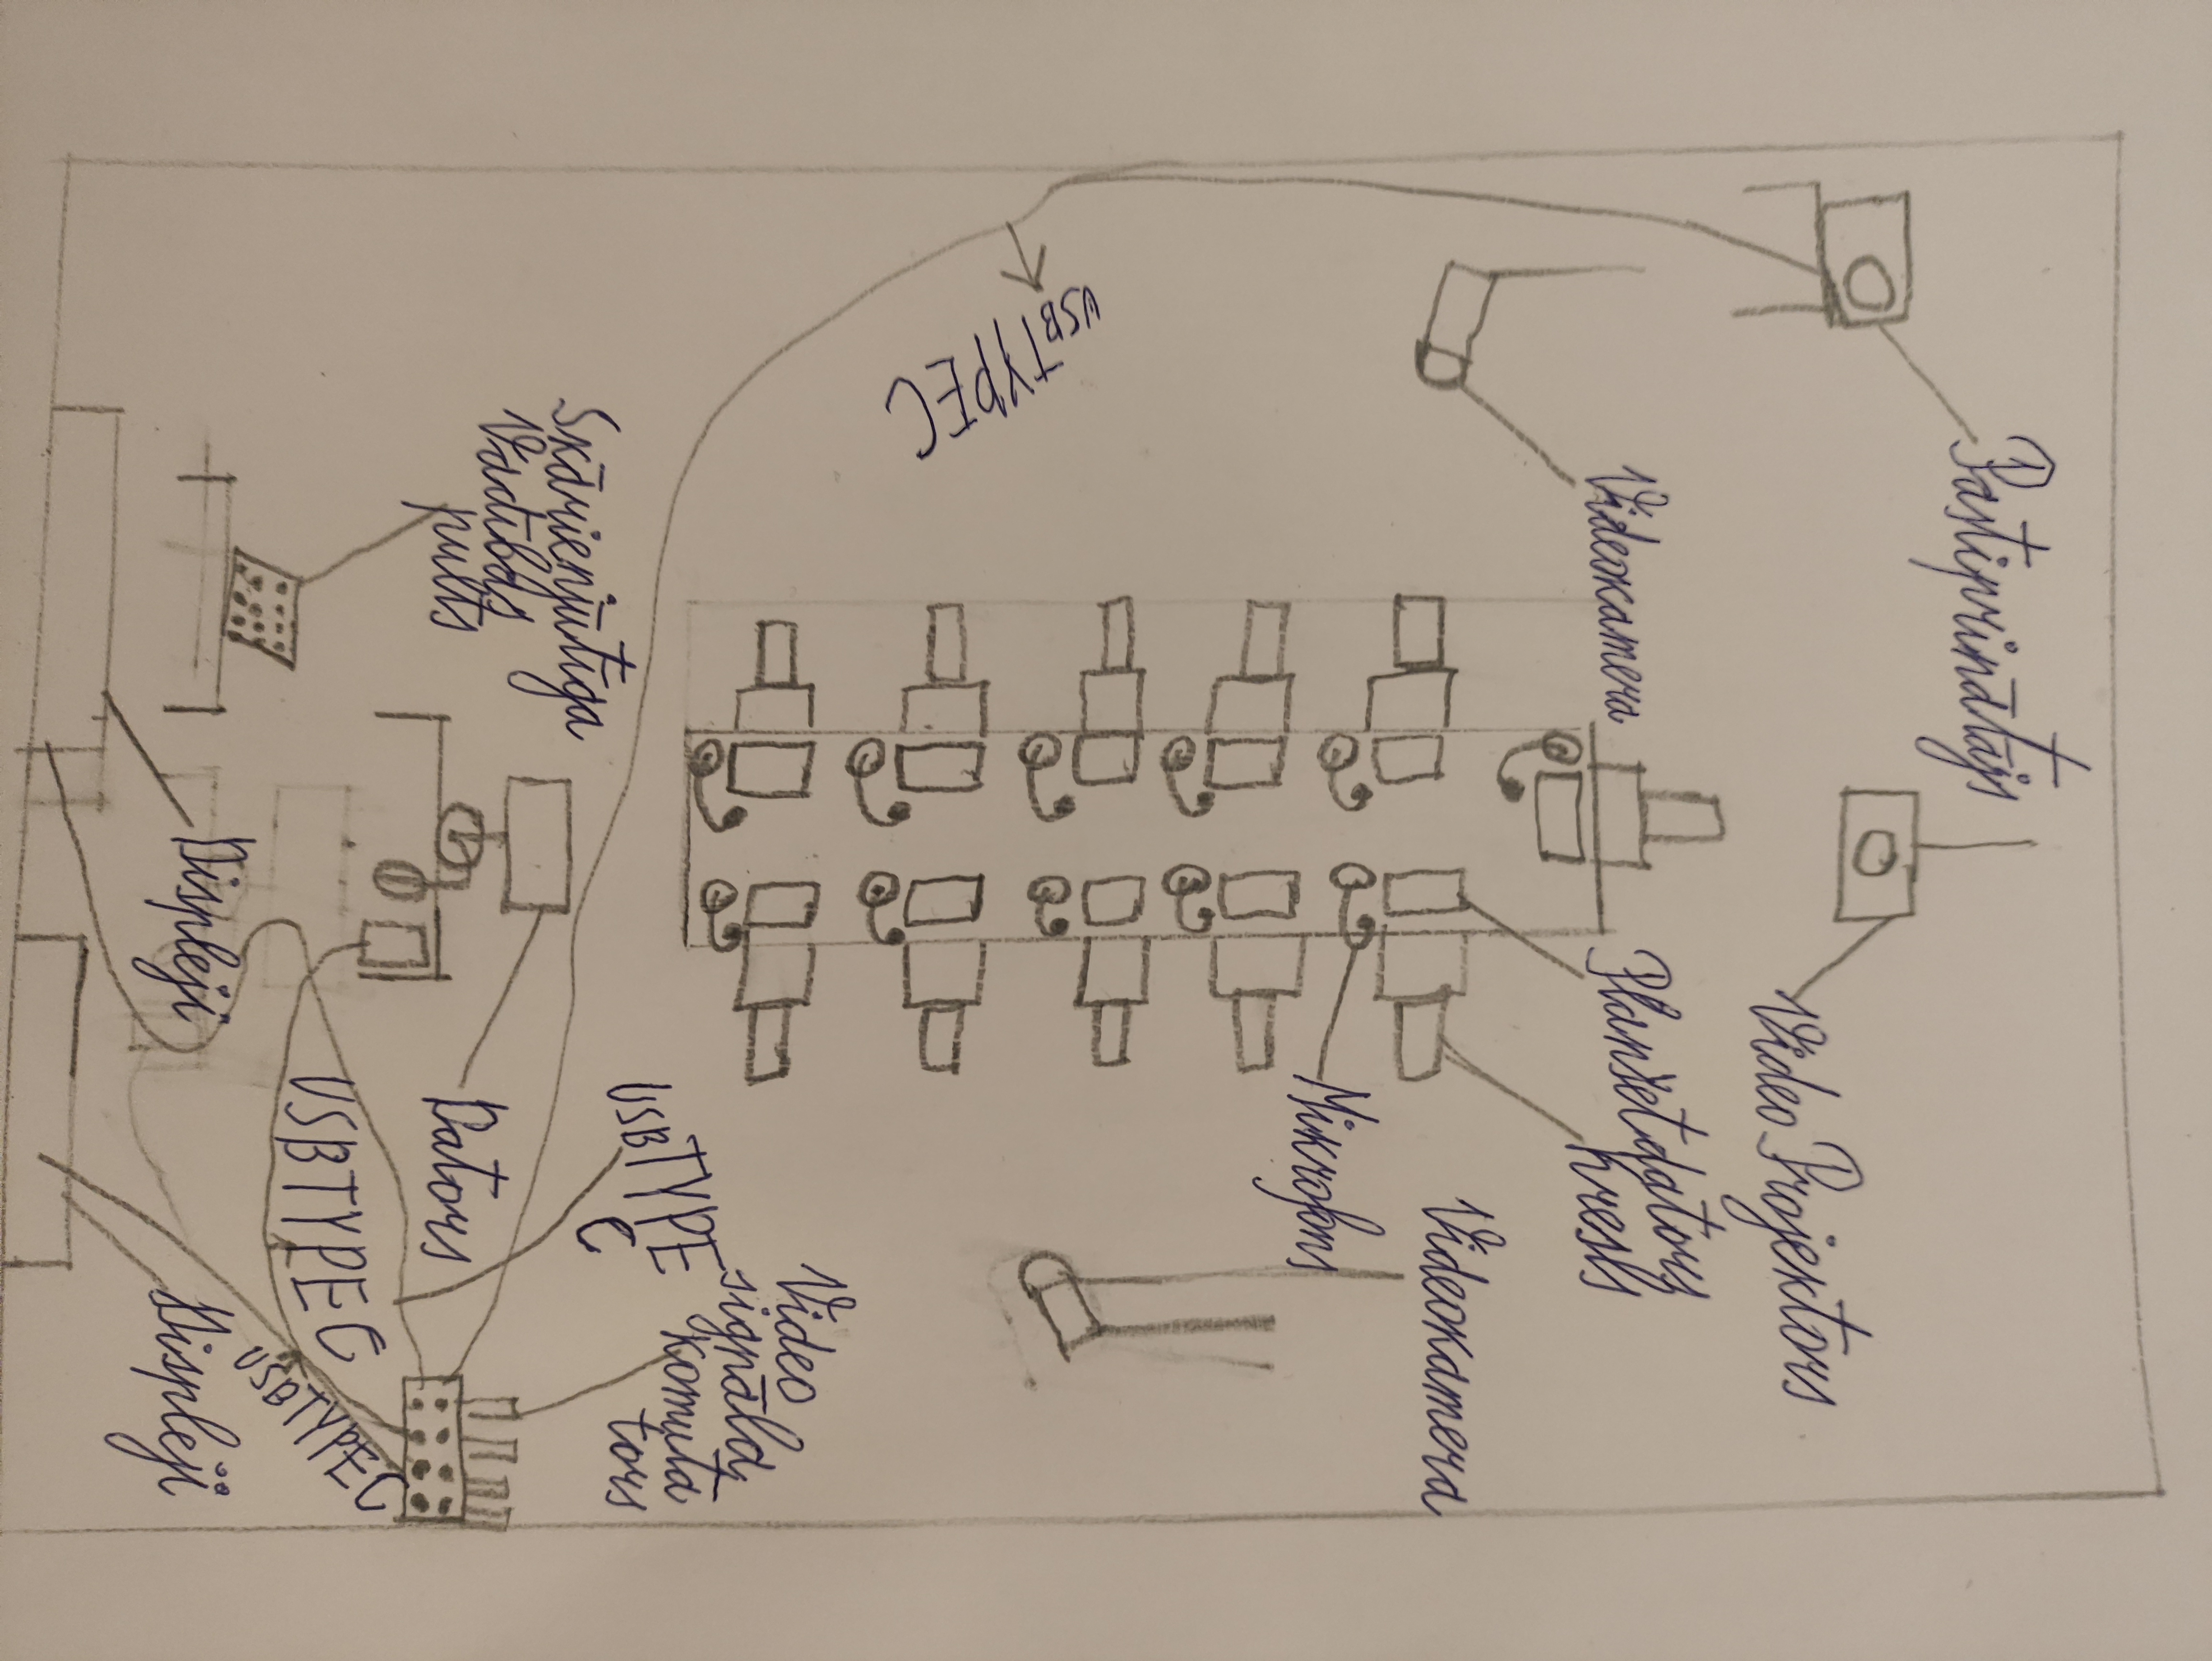 Pastiprinātājs
Video Projektors
Planšetdators
Videokamera
Kresls
Videokamera
Mikrofons
USBTYPEC
Video
signāla
komuta
tors
USBTYPE
C
Skārienjūtīga
Vadības
pults
Dators
USBTYPEC
USBTYPEC
Displeji
Displeji